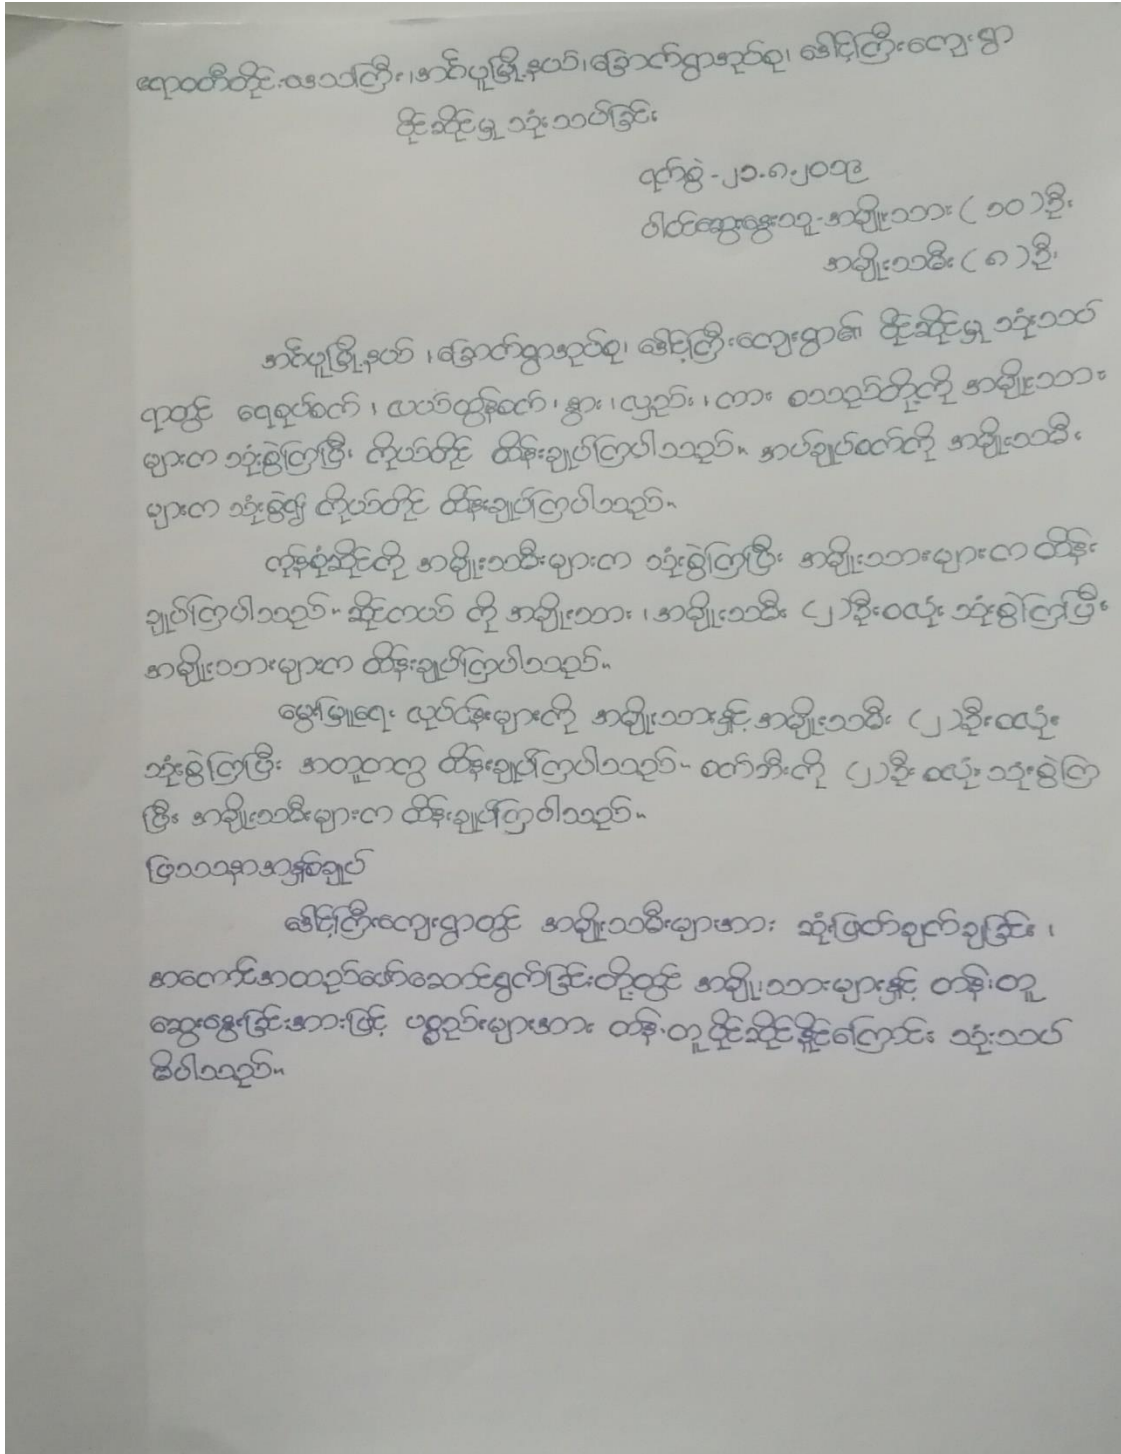 ဧရာဝတီတိုင်းဒေသကြီး၊အင်္ဂပူမြို့နယ်၊ခြောက်ရွာအုပ်စု၊ ဒေါင့်ကြီးကျေးရွာ
ပိုင်ဆိုင်မှု သုံးသပ်ခြင်း
ရက်စွဲ - ၂၁.၈.၂၀၁၃
ပါဝင်ဆွေးနွေးသူ-အမျိုးသား ( ၁၀ )ဦး
အမျိုးသမီး ( ၈ )ဦး
အင်္ဂပူမြို့နယ် ၊ခြောက်ရွာအုပ်စု၊ ဒေါင့်ကြီးကျေးရွာ၏ ပိုင်ဆိုင်မှု သုံးသပ်
ရာတွင် ရေစုပ်စက် ၊ လယ်ထွန်စက် ၊ နွား ၊ လှည်း ၊ ကား စသည်တို့ကို အမျိုးသား
များက သုံးစွဲကြပြီး ကိုယ်တိုင် ထိန်းချုပ်ကြပါသည်။ အပ်ချုပ်စက်ကို အမျိုးသမီး
များက သုံးစွဲ၍ ကိုယ်တိုင် ထိန်းချုပ်ကြပါသည်။
ကုန်စုံဆိုင်ကို အမျိုးသမီးများက သုံးစွဲကြပြီး အမျိုးသားများက ထိန်း
ချုပ်ကြပါသည်။ ဆိုင်ကယ် ကို အမျိုးသား ၊ အမျိုးသမီး (၂)ဦးစလုံး သုံးစွဲကြပြီး
အမျိုးသားများက ထိန်းချုပ်ကြပါသည်။
မွေးမြူရေး လုပ်ငန်းများကို အမျိုးသားနှင့် အမျိုးသမီး (၂)ဦးစလုံး
သုံးစွဲကြပြီး အတူတကွ ထိန်းချုပ်ကြပါသည်။ စက်ဘီးကို (၂)ဦး စလုံး သုံးစွဲကြ
ပြီး အမျိုးသမီးများက ထိန်းချုပ်ကြပါသည်။
ပြဿနာအနှစ်ချုပ်
ဒေါင့်ကြီးကျေးရွာတွင် အမျိုးသမီးများအား ဆုံးဖြတ်ချက်ချခြင်း ၊
အကောင်အထည်ဖော်ဆောင်ရွက်ခြင်းတို့တွင် အမျိုးသားများနှင့် တန်းတူ
ဆွေးနွေးခြင်းအားဖြင့် ပစ္စည်းများအား တန်းတူပိုင်ဆိုင်နိုင်ကြောင်း သုံးသပ်
မိပါသည်။